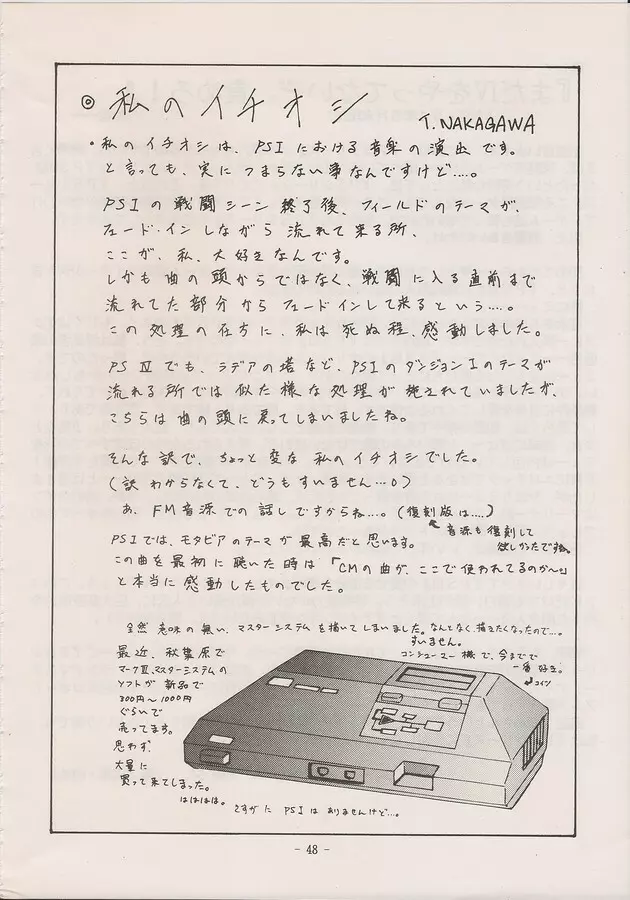 ◎ 私のイチオシ
T. NAKAGAWA
・私のイチオシは、PSIにおける音楽の演出です。
と言っても、実につまらない事なんですけど‥‥。
PSIの戦闘シーン終了後、フィールドのテーマが、
フェード・インしながら流れて来る所、
ここが、私、大好きなんです。
しかも曲の頭からではなく、戦闘に入る直前まで
流れてた部分からフェードインして来るという‥‥。
この処理の在方に、私は死ぬ程、感動しました。
PSⅣでも、ラデアの塔など、PSIのダンジョンIのテーマが
流れる所では似た様な処理が施されていましたが、
こちらは曲の頭に戻ってしまいましたね。
そんな訳で、ちょっと変な私のイチオシでした。
(訳わからなくて、どうもすいません…。)
あ、FM音源での話しですからね…。(復刻版は‥‥)
音源も復刻して
欲しかったですね。
PSIでは、モタビアのテーマが最高だと思います。
この曲を最初に聴いた時は「CMの曲が、ここで使われてるのか〜。」
と本当に感動したものでした。
全然意味の無い、マスターシステムを描いてしまいました。なんとなく、描きたくなったので…。
すいません。
コンシューマー機で、今までで
一番好き。
↲コイツ
最近、秋葉原で
マークⅢ、マスターシステムの
ソフトが新品で
300円〜1000円
ぐらいで
売ってます。
思わず、
大量に
買って来てしまった。
はははは。
さすがにPSIはありませんけど…。
- 48 -